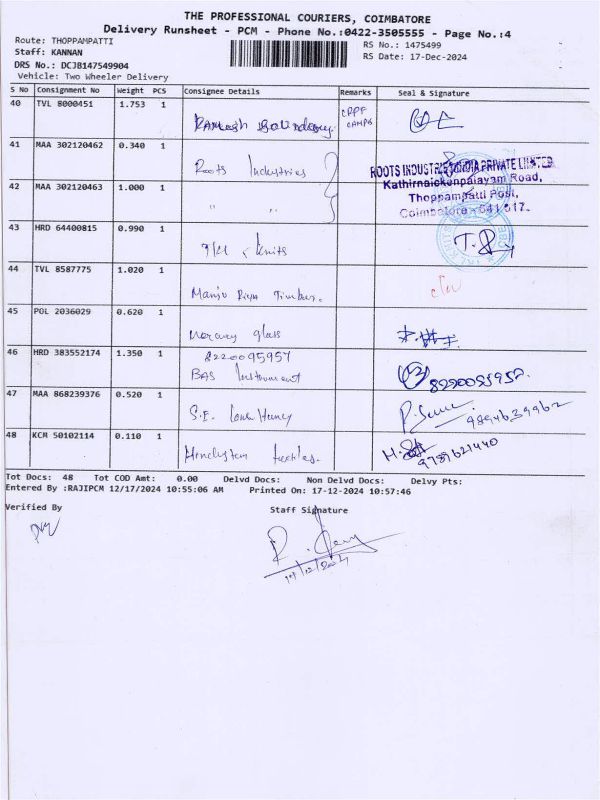 THE PROFESSIONAL COURIERS, COIMBATORE
Delivery Runsheet - PCM - Phone No.:0422-3505555 - Page No.:4
Route: THOPPAMPATTI
RS No.: 1475499
Staff: KANNAN
RS Date: 17-Dec-2024
DRS No.: DCJB147549904
Vehicle: Two Wheeler Delivery
S No Consignment No Weight PCS Consignee Details Remarks Seal & Signature
40 TVL 8000451 1.753 1 CRPF
CAMPS
41 MAA 302120462 0.340 1 Roots Industries
ROOTS INDUSTRIES INDIA PRIVATE LIMITED
Kathirnaickenpalayam Road,
42 MAA 302120463 1.000 1 " "
Thoppampatti Post,
Coimbatore - 641 017.
43 HRD 64400815 0.990 1 Knits
44 TVL 8587775 1.020 1
45 POL 2036029 0.620 1 glass
46 HRD 383552174 1.350 1 8220095957
BAS Instrument 8220095957
47 MAA 868239376 0.520 1 S.E. 9894639962
48 KCM 50102114 0.110 1 9789621440
Tot Docs: 48 Tot COD Amt: 0.00 Delvd Docs: Non Delvd Docs: Delvy Pts:
Entered By :RAJIPCM 12/17/2024 10:55:06 AM Printed On: 17-12-2024 10:57:46
Verified By Staff Signature